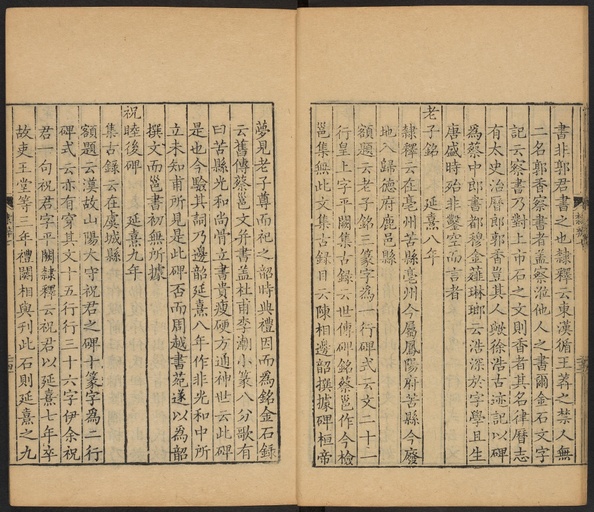 書非郭君書之也隸釋云東漢循王莽之禁人無
二名郭香察書者蓋察涖他人之書爾金石文字
記云察書乃對上市石之文則香者其名律曆志
有太史治曆郎郭香豈其人歟徐浩古迹記以碑
為蔡中郎書都穆金薤琳瑯云浩深於字學且生
唐盛時殆非鑿空而言者
老子銘 延熹八年
隸釋云在亳州苦縣亳州今屬鳳陽府苦縣今廢
地入歸德府鹿邑縣
額題云老子銘三篆字為一行碑式云文二十一
行皇上字平闕集古錄云世傳碑銘蔡邕作今檢
邕集無此文集古錄目云陳相邊韶撰據碑桓帝
夢見老子尊而祀之韶時典禮因而為銘金石錄
云舊傳蔡邕文并書蓋杜甫李潮小篆八分歌有
曰苦縣光和尚骨立書貴瘦硬方通神世云此碑
是也今驗其詞乃邊韶延熹八年作非光和中所
立未知甫所見是此碑否而周越書苑遂以為韶
撰文而邕書初無所據
祝睦後碑 延熹九年
集古錄云在虞城縣
額題云漢故山陽太守祝君之碑十篆字為二行
碑式云亦有穿其文十五行行三十六字伊余祝
君一句祝君字平闕隸釋云祝君以延熹七年卒
故吏王堂等三年禮闋相與刊此石則延熹之九